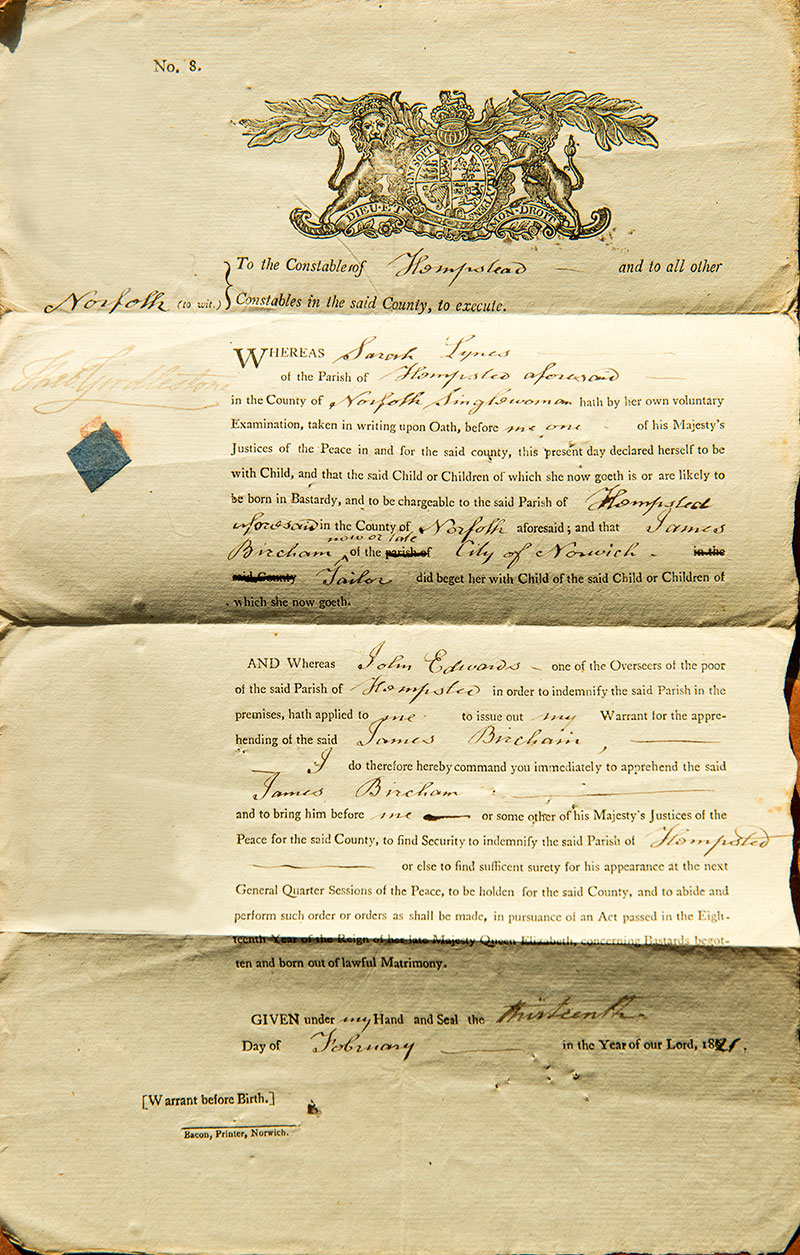 No. 8.
DIEU·ET·MON·DROIT
To the Constables of Hempstead — and to all other
Norfolk (to wit.) } Constables in the said County, to execute.
WHEREAS Sarah Lynes
of the Parish of Hempsted aforesaid
in the County of Norfolk Singlewoman hath by her own voluntary
Examination, taken in writing upon Oath, before me one of his Majesty's
Justices of the Peace in and for the said county, this present day declared herself to be
with Child, and that the said Child or Children of which she now goeth is or are likely to
be born in Bastardy, and to be chargeable to the said Parish of Hempsted
aforesaid in the County of Norfolk aforesaid; and that James
now or late
Bircham of the parish of City of Norwich - in the
said County Tailor did beget her with Child of the said Child or Children of
which she now goeth.
AND Whereas John Edwards - one of the Overseers of the poor
of the said Parish of Hempsted in order to indemnify the said Parish in the
premises, hath applied to me to issue out my Warrant for the appre-
hending of the said James Bircham,
I do therefore hereby command you immediately to apprehend the said
James Bircham
and to bring him before me or some other of his Majesty's Justices of the
Peace for the said County, to find Security to indemnify the said Parish of Hempsted
or else to find sufficent surety for his appearance at the next
General Quarter Sessions of the Peace, to be holden for the said County, and to abide and
perform such order or orders as shall be made, in pursuance of an Act passed in the Eigh-
teenth Year of the Reign of her late Majesty Queen Elizabeth, concerning Bastards begot-
ten and born out of lawful Matrimony.
GIVEN under my Hand and Seal the thirteenth
Day of February in the Year of our Lord, 1821.
[Warrant before Birth.]
Bacon, Printer, Norwich.